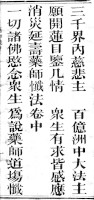 三千界內慈悲主　百億洲中大法王
願開蓮目鑒凡情　眾生有求皆感應
消災延壽藥師懺法卷中
一切諸佛愍念眾生為說藥師道場懺